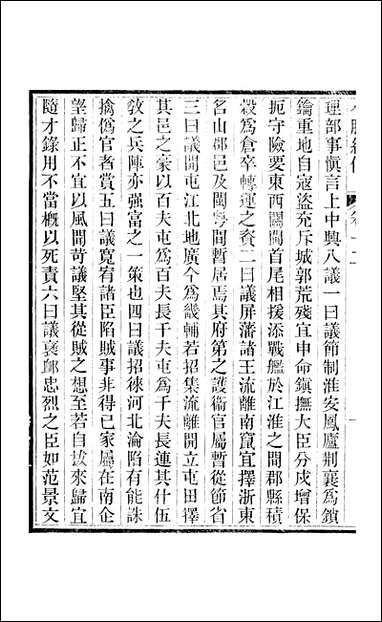 理部事愼言上中興八議一曰議節制淮安鳳廬荆襄爲鎖
鑰重地自寇盜充斥城郭荒殘宜申命鎭撫大臣分戍增保
扼守險要東西關閫首尾相援添戰艦於江淮之間郡縣積
穀爲倉卒轉運之資二曰議屏藩諸王流離南竄宜擇浙東
名山郡邑及閩粤間暫居焉其府第之護衞官屬暫從節省
三曰議開屯江北地廣今爲畿輔若招集流離開立屯田擇
其邑之豪以百夫屯爲百夫長千夫屯爲千夫長連其什伍
敎之兵陣亦强富之一策也四曰議招徠河北淪陷有能誅
擒僞官者賞五曰議寬宥諸臣陷賊事非得已家屬在南企
望歸正不宜以風聞苛議堅其從賊之想至若自拔來歸宜
隨才錄用不當概以死責六曰議襃䘏忠烈之臣如范景文